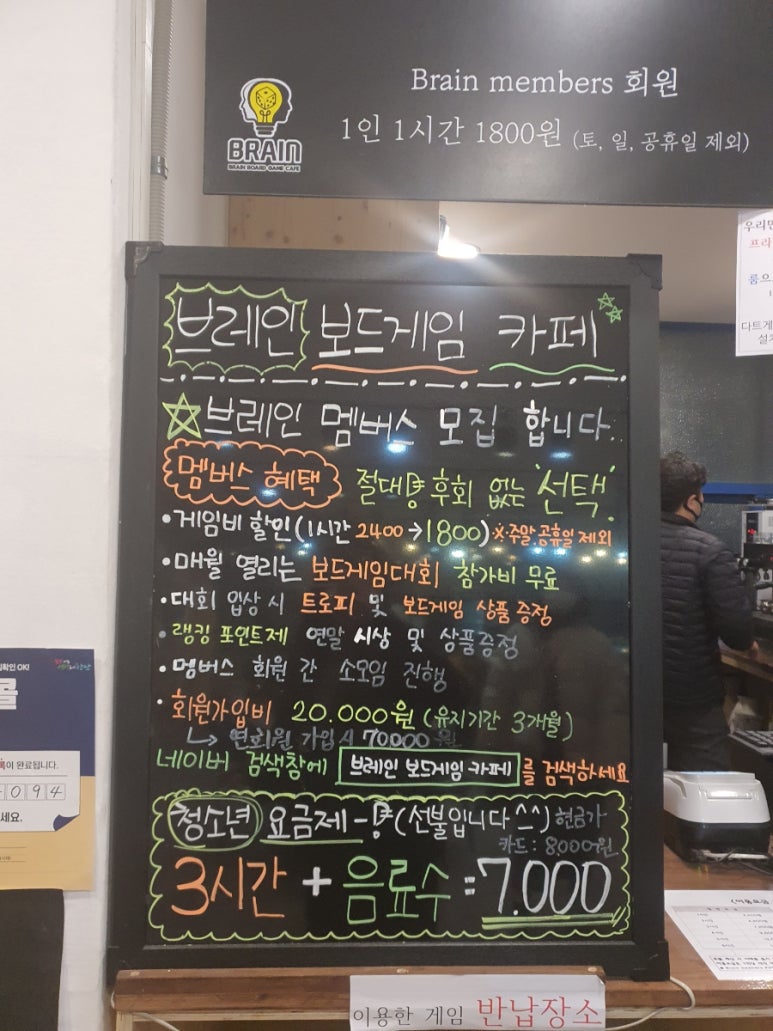 Brain members 회원
1인 1시간 1800원 (토, 일, 공휴일 제외)
BRAIN
BRAIN BOARD GAME CAFE
브레인 보드게임 카페
브레인 멤버스 모집 합니다.
멤버스 혜택 절대 후회 없는 '선택'
• 게임비 할인 (1시간 2400 → 1800) ※주말.공휴일 제외
• 매월 열리는 보드게임대회 참가비 무료
• 대회 입상 시 트로피 및 보드게임 상품 증정
• 랭킹 포인트제 연말 시상 및 상품증정
• 멤버스 회원 간 소모임 진행
• 회원가입비 20.000원 (유지기간 3개월)
↳ 연회원 가입 시 70000원
네이버 검색창에 브레인 보드게임 카페 를 검색하세요
청소년 요금제 - (선불입니다 ^^) 현금가
카드 : 8,000원
3시간 + 음료수 = 7.000
이용한 게임 반납장소
우리만
프라
룸으
다트게
설치
확인 OK!
록이 완료됩니다.
- 0 9 4
세요.